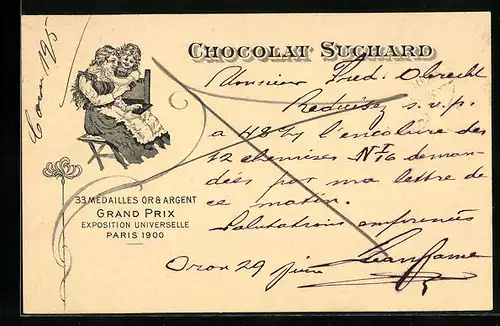 CHOCOLAT SUCHARD
Monsieur Fred. Obrecht
Reduisez s.v.p.
a 48 l'encolaire des
12 chemises N° I a deman-
dées par ma lettre de
ce matin.
Salutations empressées
Oron 29 juin
33 MÉDAILLES OR & ARGENT
GRAND PRIX
EXPOSITION UNIVERSELLE
PARIS 1900